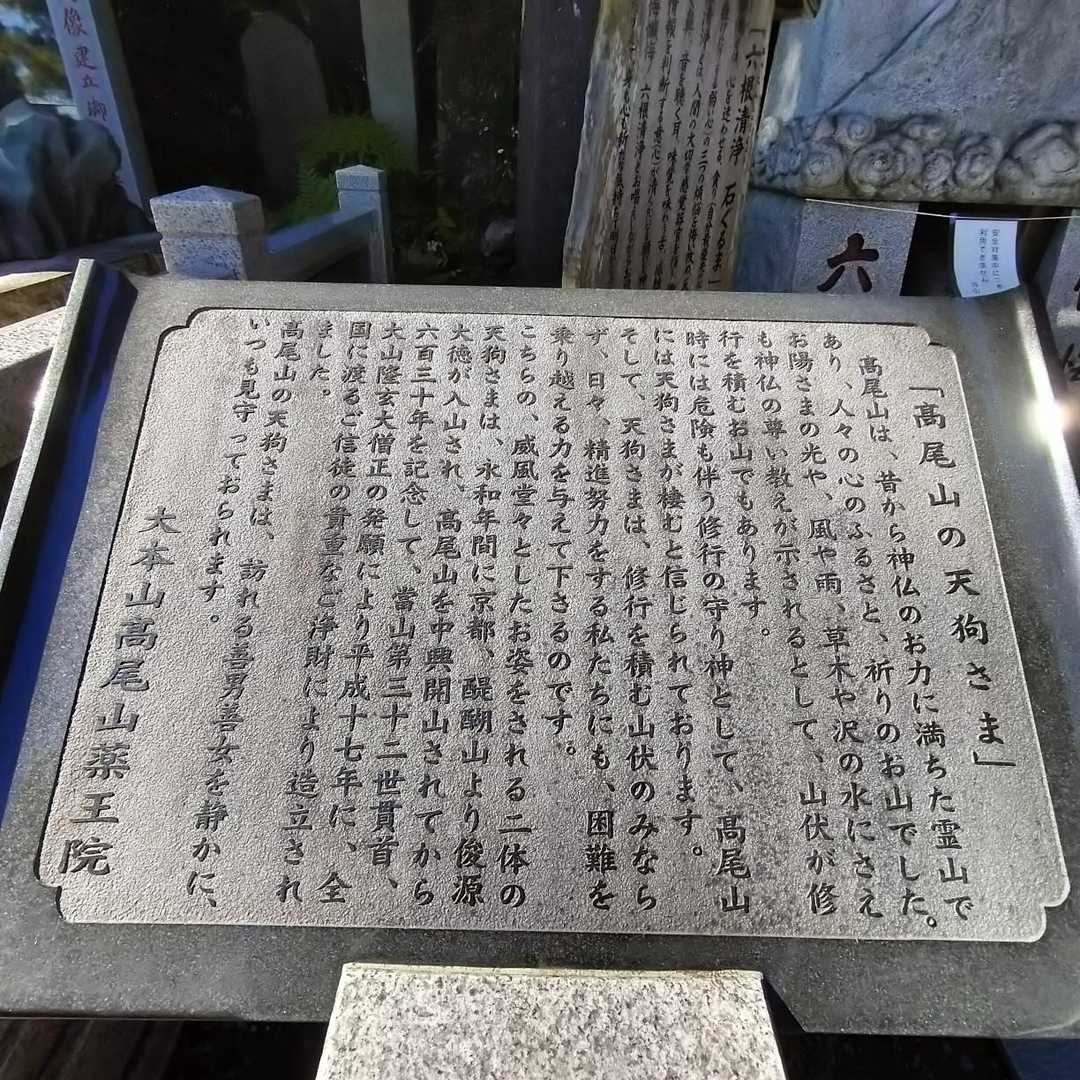 「髙尾山の天狗さま」
髙尾山は、昔から神仏のお力に満ちた霊山で
あり、人々の心のふるさと、祈りのお山でした。
お陽さまの光や、風や雨、草木や沢の水にさえ
も神仏の尊い教えが示されるとして、山伏が修
行を積むお山でもあります。
時には危険も伴う修行の守り神として、髙尾山
には天狗さまが棲むと信じられております。
そして、天狗さまは、修行を積む山伏のみなら
ず、日々、精進努力をする私たちにも、困難を
乗り越える力を与えて下さるのです。
こちらの、威風堂々としたお姿をされる二体の
天狗さまは、永和年間に京都、醍醐山より俊源
大徳が入山され、髙尾山を中興開山されてから
六百三十年を記念して、當山第三十二世貫首、
大山隆玄大僧正の発願により平成十七年に、全
国に渡るご信徒の貴重なご浄財により造立され
ました。
髙尾山の天狗さまは、訪れる善男善女を静かに、
いつも見守っておられます。
大本山髙尾山薬王院
六
「六根清浄 石ぐるま」
像建立